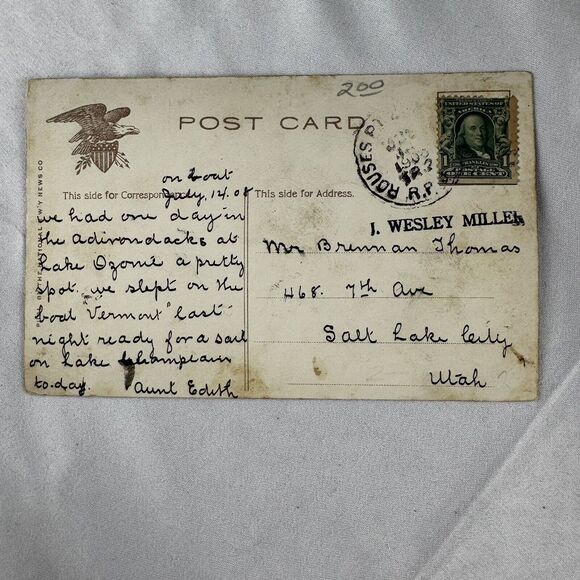 200
POST CARD
UNITED STATES OF
FRANKLIN
POSTAGE
ONE CENT
ROUSES P
1908
R.P.
on boat
July, 14. 08
This side for Correspondence
This side for Address.
J. WESLEY MILLER
we had one day in
the Adirondacks at
Lake Ozonia a pretty
spot. we slept on the
boat "Vermont" last
night ready for a sail
on Lake Champlain
to-day.
Aunt Edith
Mr Brennan Thomas
468. 7th Ave
Salt Lake City
Utah
THE NATIONAL NEWS CO